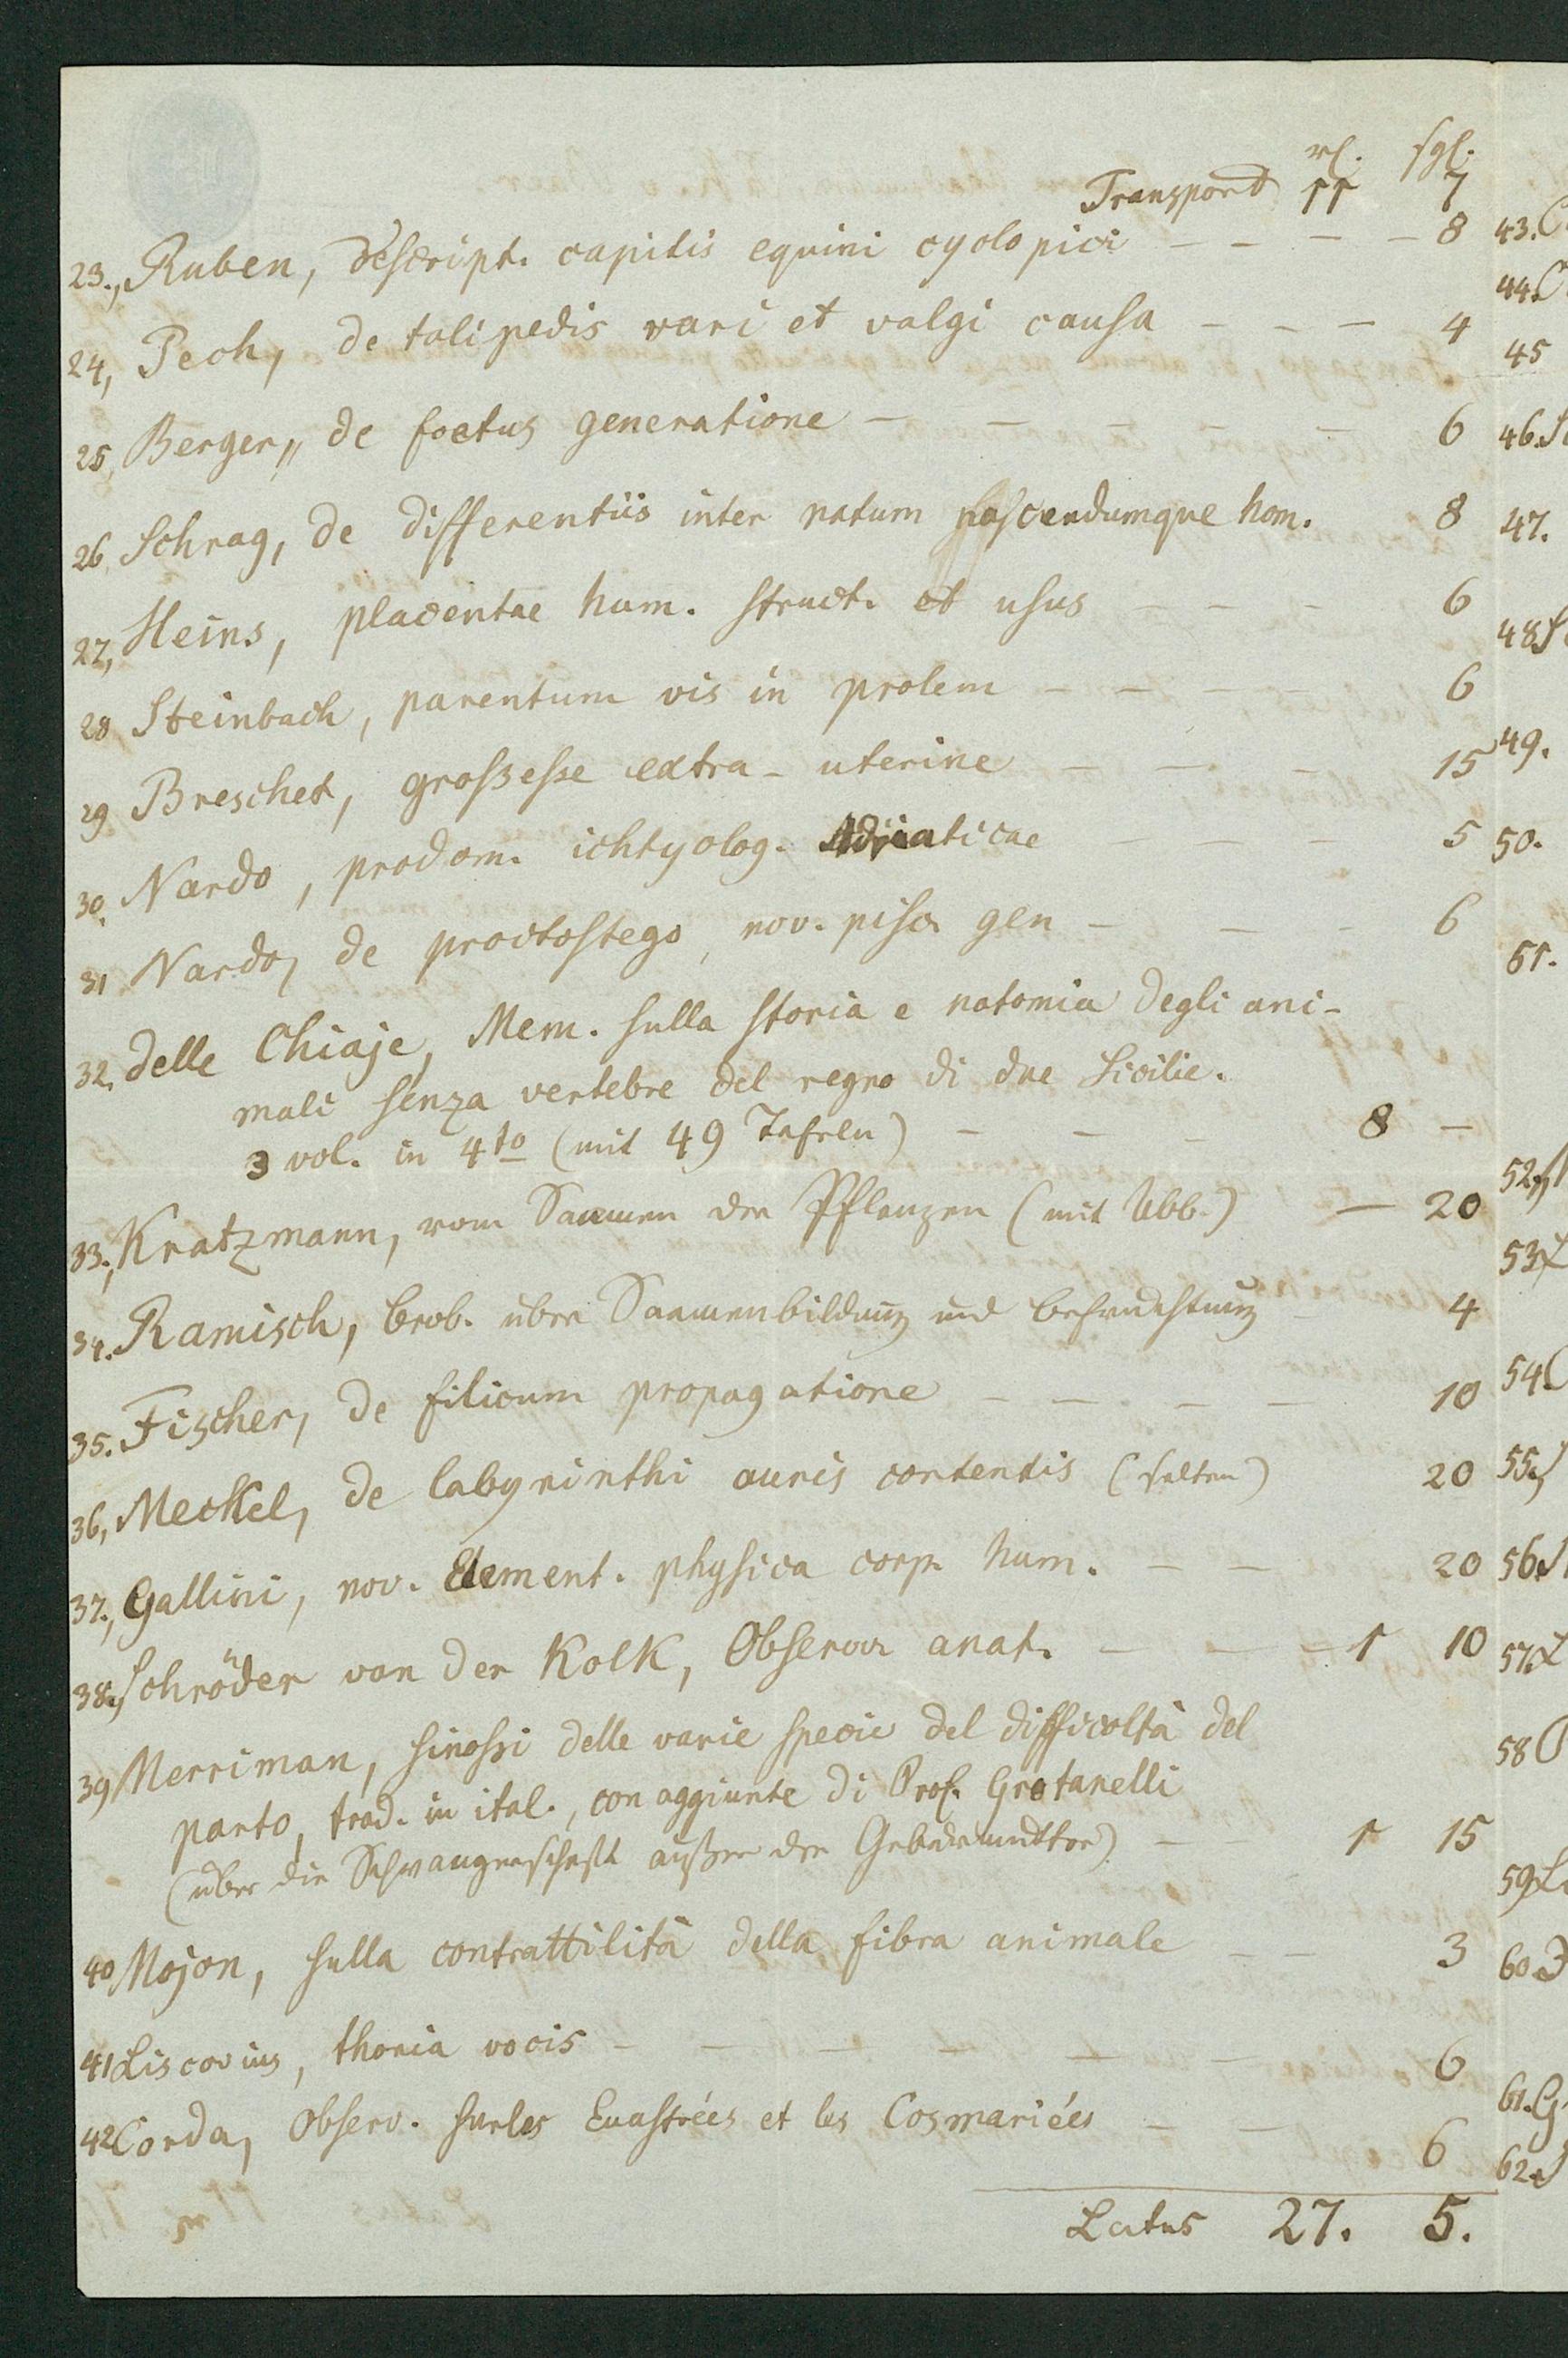 rl. sgl.
Transport 11 7
23., Ruben, descript. capitis equini cyclopici - - - - 8
24, Pech, de talipedis vari et valgi causa - - - 4
25, Berger, de foetus generatione - - - - - 6
26, Schrag, de differentiis inter natum nascendumque hom. 8
27, Heins, placentae hum. struct. et usus - - - 6
28 Steinbach, parentum vis in prolem - - - - 6
29 Breschet, grossesse extra-uterine - - - 15
30. Nardo, prodom. ichtyolog. Adriaticae - - - 5
31 Nardo, de proctostego, nov. pisc. gen - - - 6
32. delle Chiaje, Mem. sulla storia e notomia degli ani-
mali senza vertebre del regno di due Sicilie.
3 vol. in 4to (mit 49 Tafeln) - - - 8 -
33., Kratzmann, vom Saamen der Pflanzen (mit Abb.) - 20
34. Ramisch, beob. über Saamenbildung und befruchtung - 4
35. Fischer, de filicum propagatione - - - - 10
36, Meckel, de labyrinthi auris contentis (selten) 20
37., Gallini, nov. Element. physica corp. hum. - - 20
38., Schröder van der Kolk, Observ. anat. - - - 1 10
39 Merriman, sinossi delle varie specie del difficoltà del
parto, trad. in ital., con aggiunte di Prof. Grotanelli
(über die Schwangerschaft außer der Gebärmutter) - - 1 15
40 Mojon, sulla contrattilità della fibra animale - - 3
41 Liscovius, thoria vocis - - - - - - 6
42 Corda, Observ. sur les Euastrées et les Cosmariées - - 6
Latus 27. 5.
43.
44.
45
46.
47.
48
49.
50.
51.
52.
53
54.
55.
56.
57.
58
59
60.
61. G
62.